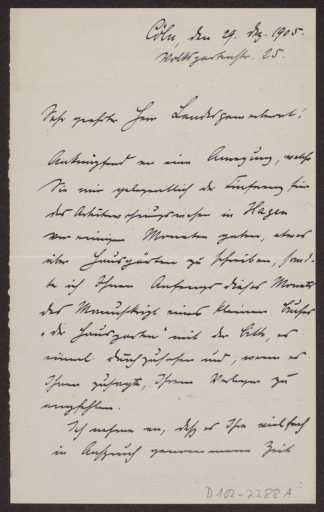 Cöln, den 29. Dez. 1905.
Volksgartenstr. 25.
Sehr geehrter Herr Landesgewerberat!
Anknüpfend an eine Anregung, welche
Sie mir gelegentlich der Konferenz für
das Arbeiterwohnungswesen in Hagen
vor einigen Monaten gaben, etwas
über Hausgärten zu schreiben, sand-
te ich Ihnen Anfangs dieses Monats
das Manuskript eines kleinen Buches
"der Hausgarten" mit der Bitte, es
einmal durchzusehen und, wenn es
Ihnen zusagte, Ihrem Verleger zu
empfehlen.
Ich nehme an, daß es Ihre vielfach
in Anspruch genommene Zeit
D102-2288A